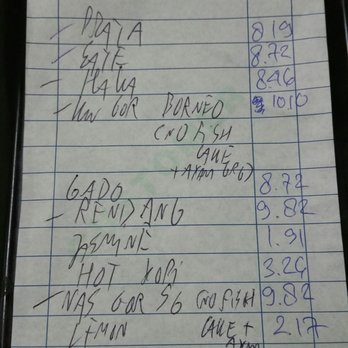 - PRATA 8.19
- SATE 8.72
- MAHA 8.46
- KW GOR BORNEO 10.10
CNO FISH
CAKE
+ AYAM GRG)
GADO 8.72
- RENDANG 9.82
JASMINE 1.91
HOT KOPI 3.26
- NAS GOR SG CNO FISH 9.82
LEMON CAKE + 2.17
AYAM